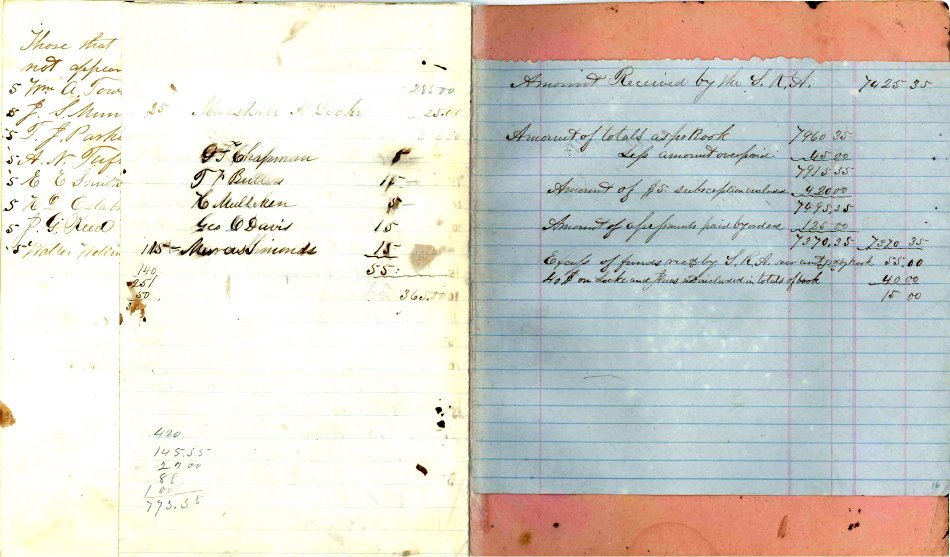 Those that
not appear
5 Wm A. Tow
5 J. S. Munr
5 T. J. Parke
5 A. N. Tuf
5 E E Smith
5 H. D.
5 J. G. Reed
5 Walter
285.00
25 Marshall A Locke 25.00
G F Chapman 5
T F Bullard 15
H Mulliken 5
Geo O Davis 15
115 Marcus Simonds 15
140 55
25
50 365.00
420
145.35
29 00
88
1 00
793.35
Amount Received by the S. R. A. 7425 35
Amount of totals as per Book 7960 35
Less amount overpaid 45 00
7915.35
Amount of $5 subscription included 420 00
7495.35
Amount of assessments paid by orders 125 00
7370.35 7370 35
Excess of funds recd by S. R. A. over amt pd by book 55.00
40 $ on Locke and not included in totals of book 40 00
15 00
16